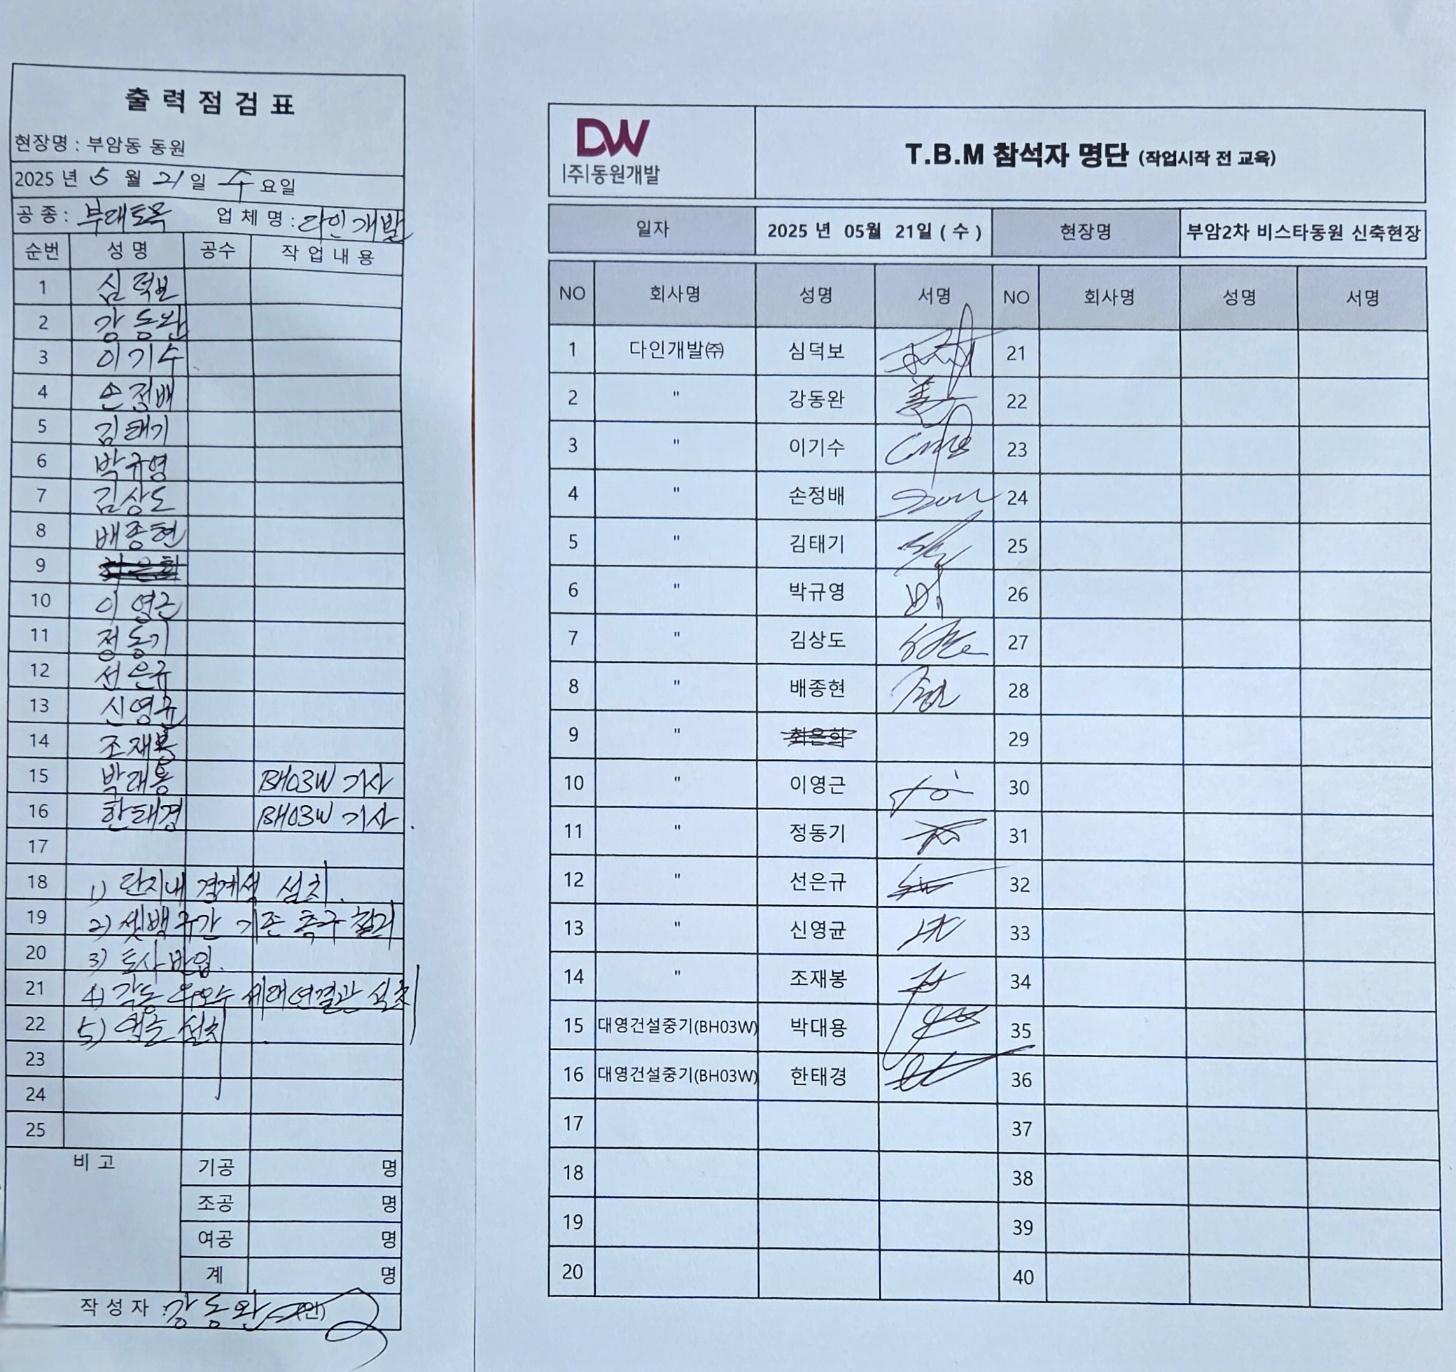 출력점검표
현장명 : 부암동 동원
2025 년 5 월 21 일 수 요일
공 종 : 부대토목 업 체 명 : 다인개발
순번 성 명 공수 작 업 내 용
1 심덕보
2 강동완
3 이기수
4 손정배
5 김태기
6 박규영
7 김상도
8 배종현
9 최은희
10 이영근
11 정동기
12 선은규
13 신영균
14 조재봉
15 박대용 BH03W 기사
16 한태경 BH03W 기사
17
18 1) 단지내 경계석 설치.
19 2) 셋백구간 기존 측구 철거
20 3) 토사반입.
21 4) 각동 우오수 세대연결관 설치
22 5) 설치.
23
24
25
비 고 기공 명
조공 명
여공 명
계 명
작 성 자 : 강동완 (인)
DW
(주)동원개발
T.B.M 참석자 명단 (작업시작 전 교육)
일자 2025 년 05월 21일 ( 수 ) 현장명 부암2차 비스타동원 신축현장
NO 회사명 성명 서명 NO 회사명 성명 서명
1 다인개발㈜ 심덕보 21
2 " 강동완 22
3 " 이기수 23
4 " 손정배 24
5 " 김태기 25
6 " 박규영 26
7 " 김상도 27
8 " 배종현 28
9 " 최은희 29
10 " 이영근 30
11 " 정동기 31
12 " 선은규 32
13 " 신영균 33
14 " 조재봉 34
15 대영건설중기(BH03W) 박대용 35
16 대영건설중기(BH03W) 한태경 36
17 37
18 38
19 39
20 40